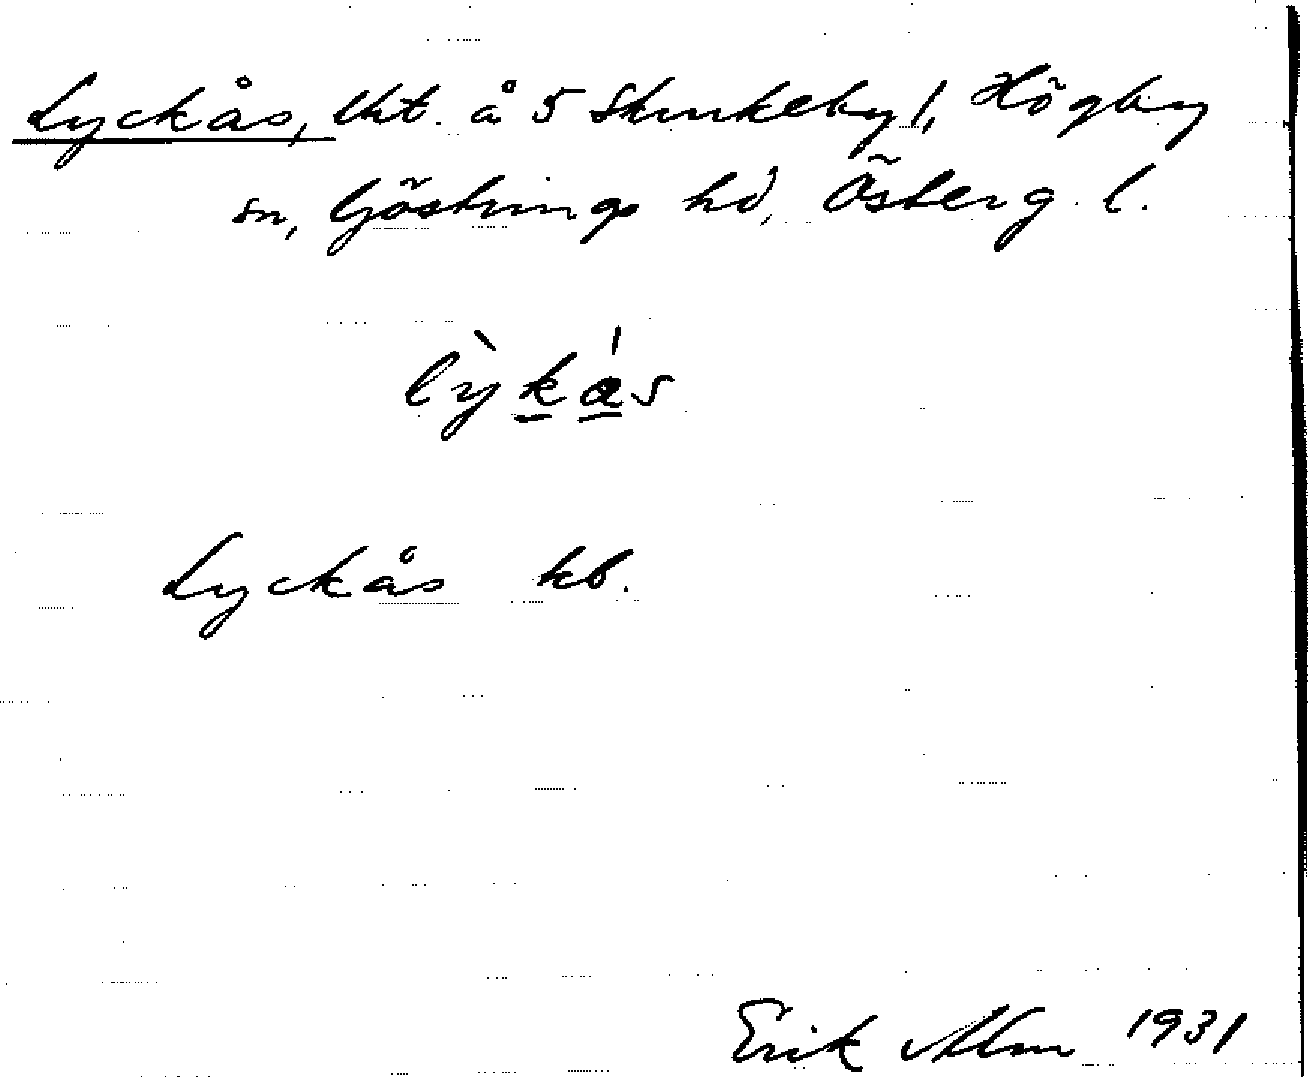 Lyckås, lht. å 5 Skunkeby 1, Högby
sn, Göstrings hd, Österg. l.
lỳkás
Lyckås kb.
Erik Alm 1931